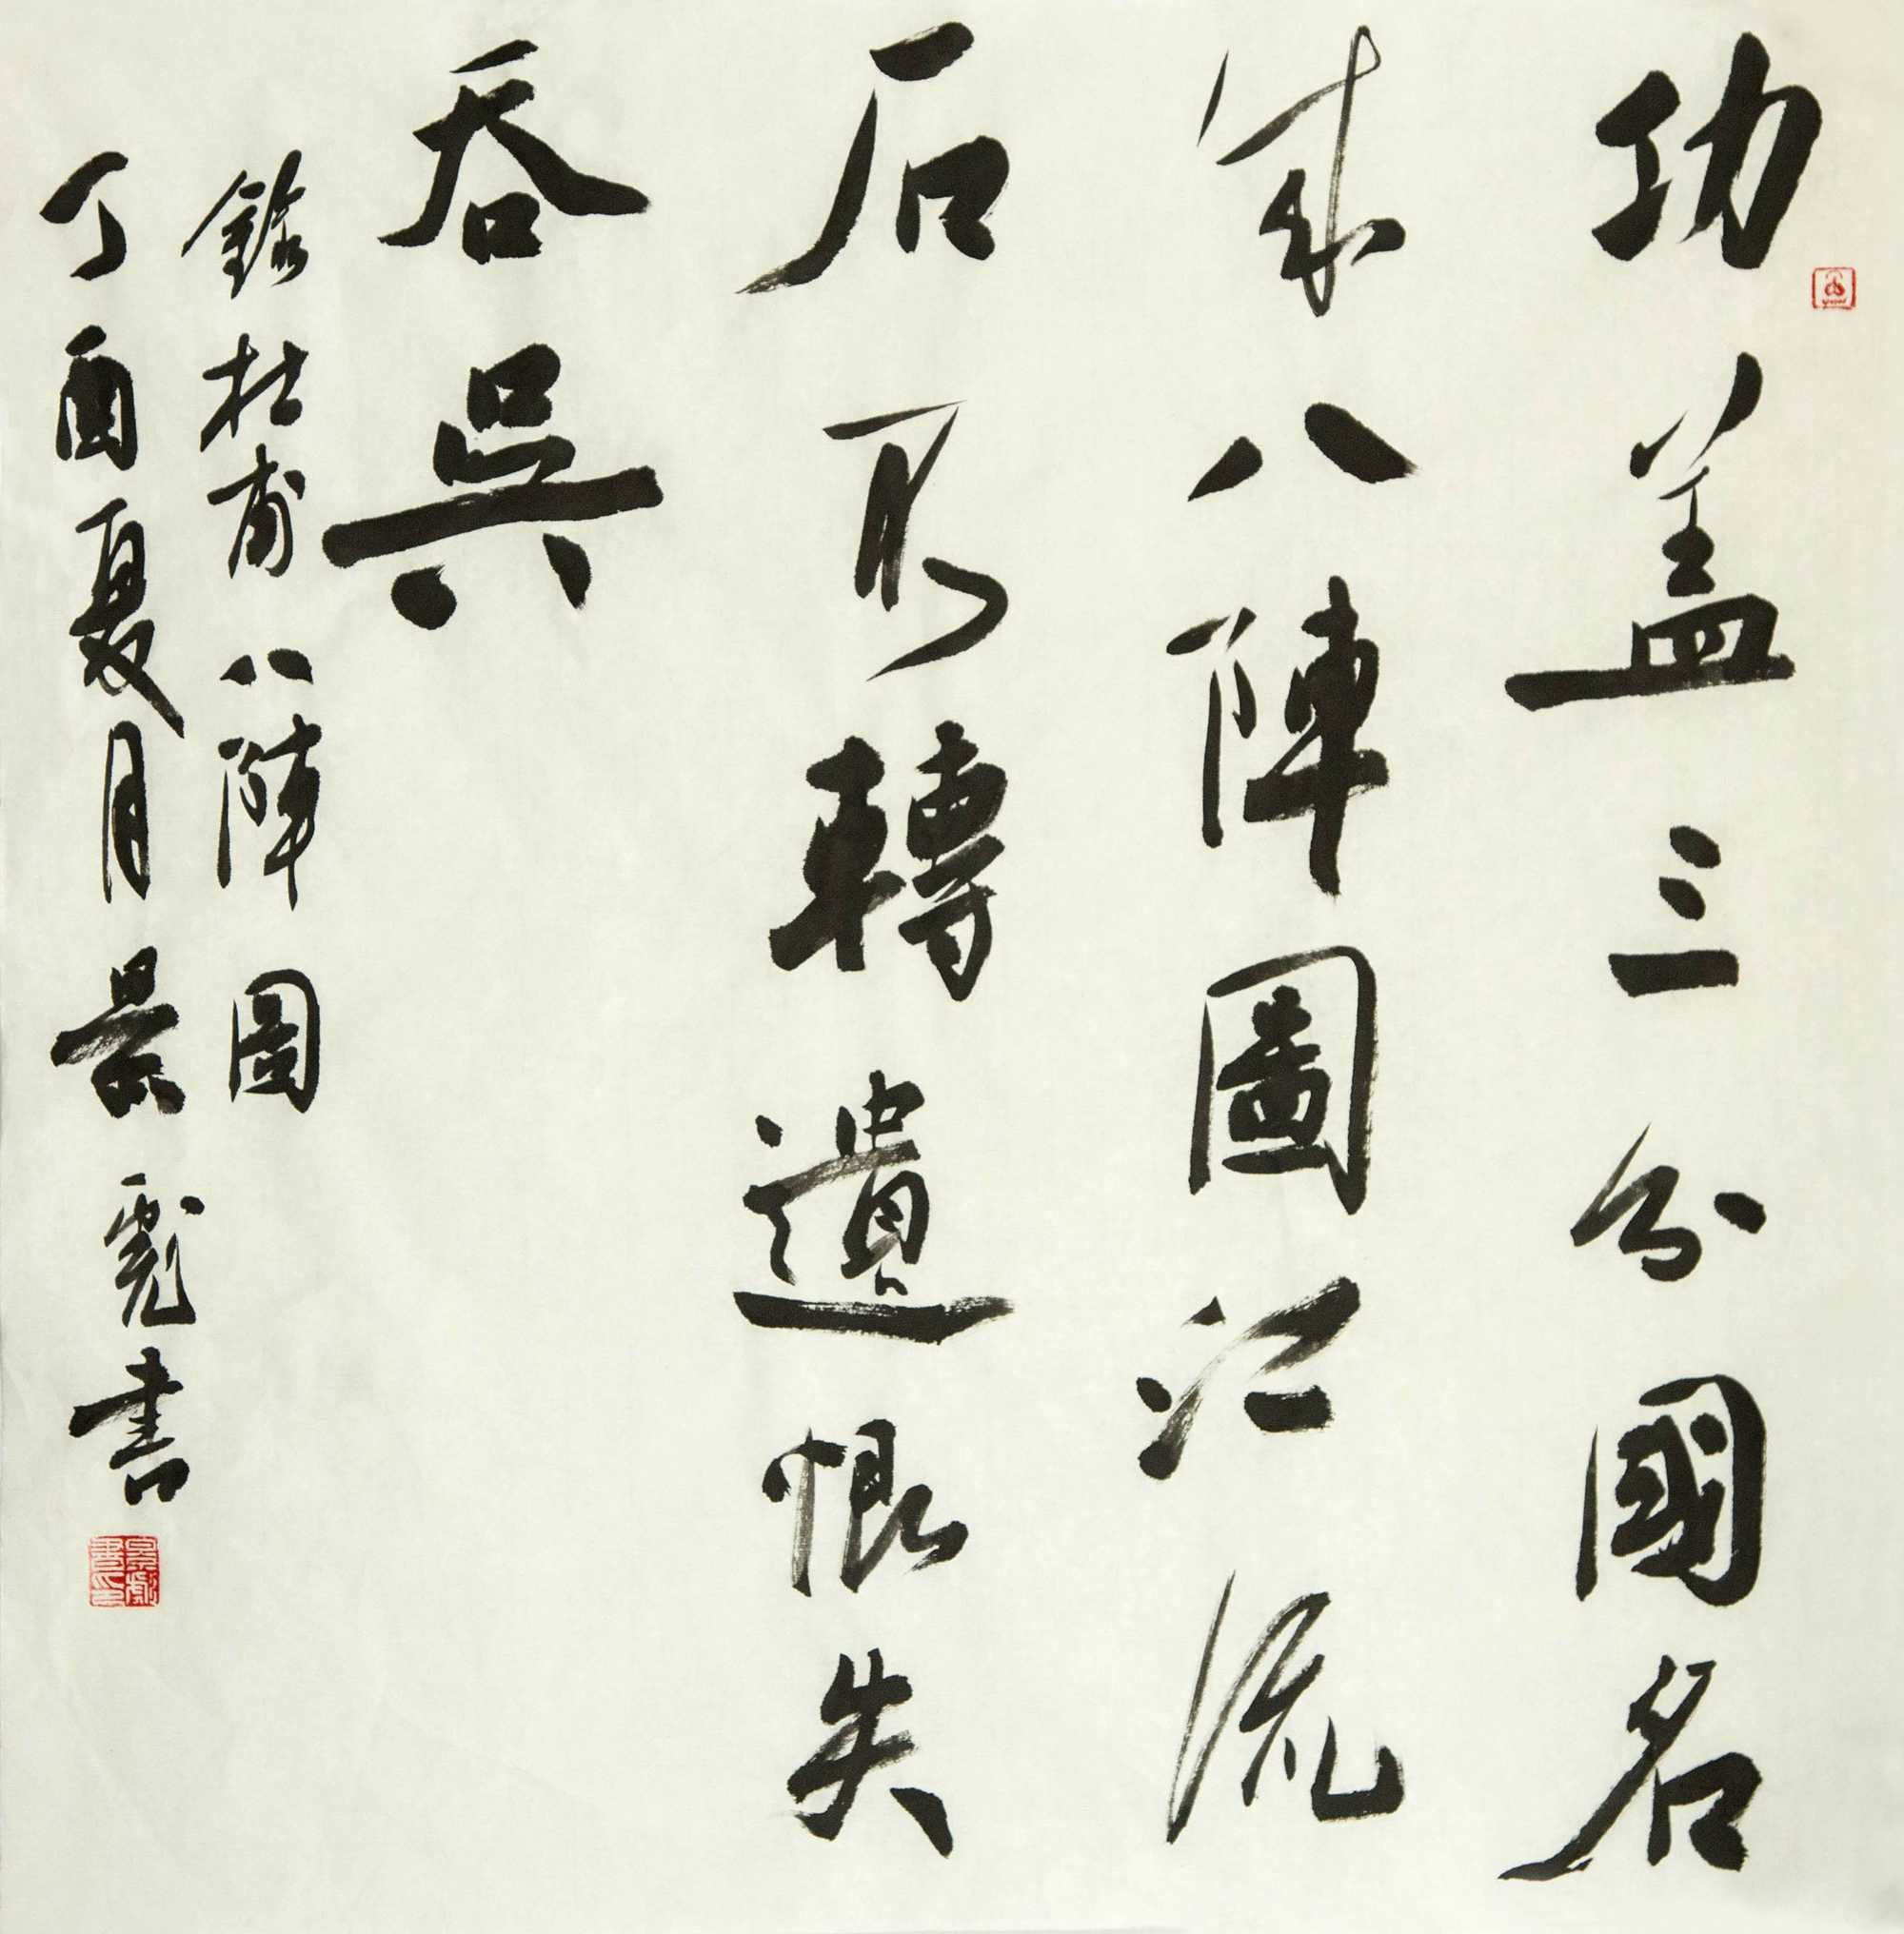 功盖三分國名
成八陣圖江流
石不轉遺恨失
吞吳
錄杜甫八陣圖
丁酉夏月景彪書